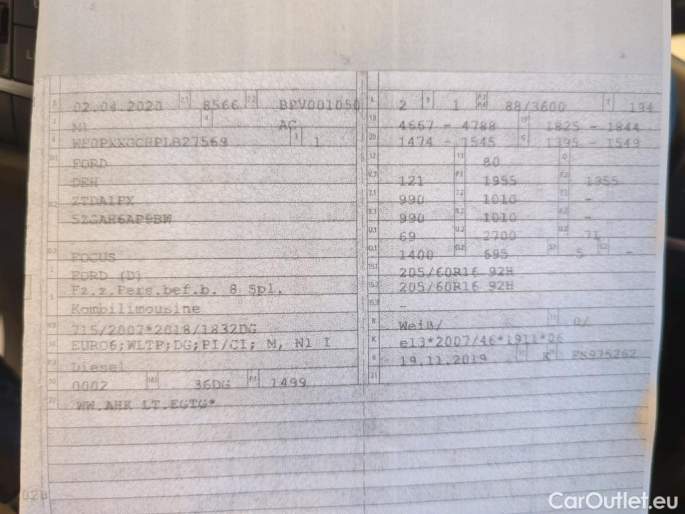 02.04.2020 8566 BPV001050
M1 AC
1
FORD
DEH
FOCUS
FORD (D)
Fz.z.Pers.bef.b. 8 Spl.
Kombilimousine
715/2007*2018/1832DG
EURO6;WLTP;DG;PI/CI; M, N1 I
Diesel
0002 36DG 1499
WW.AHK LT.EGTG*
2 1 88/3600 194
4667 - 4788 1825 - 1844
1474 - 1545 1395 - 1549
80
121 1955 1355
990 1010 -
990 1010 -
69 2700 74
1400 695 5 -
205/60R16 92H
205/60R16 92H
-
Weiß/ 0/
e13*2007/46*1911*06
19.11.2019 K
CarOutlet.eu